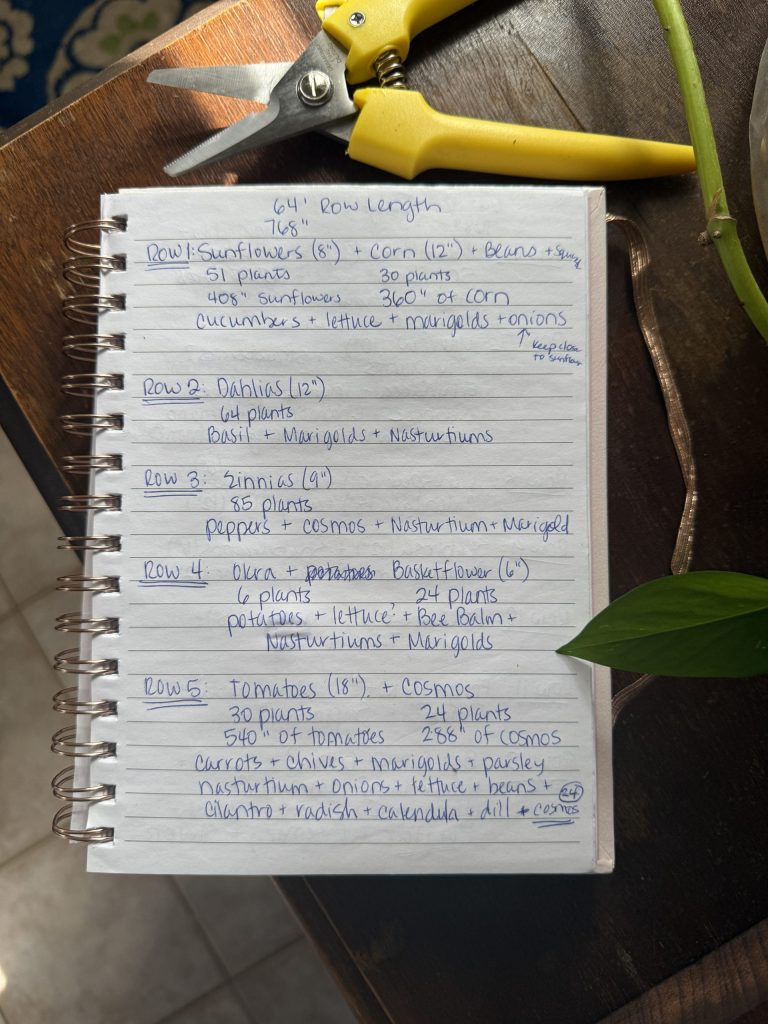 64' Row Length
768"
Row 1: Sunflowers (8") + Corn (12") + Beans +
51 plants 30 plants
408" sunflowers 360" of corn
cucumbers + lettuce + marigolds + onions
↑ keep close
to
Row 2: Dahlias (12")
64 plants
Basil + Marigolds + Nasturtiums
Row 3: Zinnias (9")
85 plants
peppers + cosmos + Nasturtium + Marigold
Row 4: Okra + potatoes Basketflower (6")
6 plants 24 plants
potatoes + lettuce + Bee Balm +
Nasturtiums + Marigolds
Row 5: Tomatoes (18") + Cosmos
30 plants 24 plants
540" of tomatoes 288" of cosmos
carrots + chives + marigolds + parsley
nasturtium + onions + lettuce + beans + 24
cilantro + radish + calendula + dill + cosmos